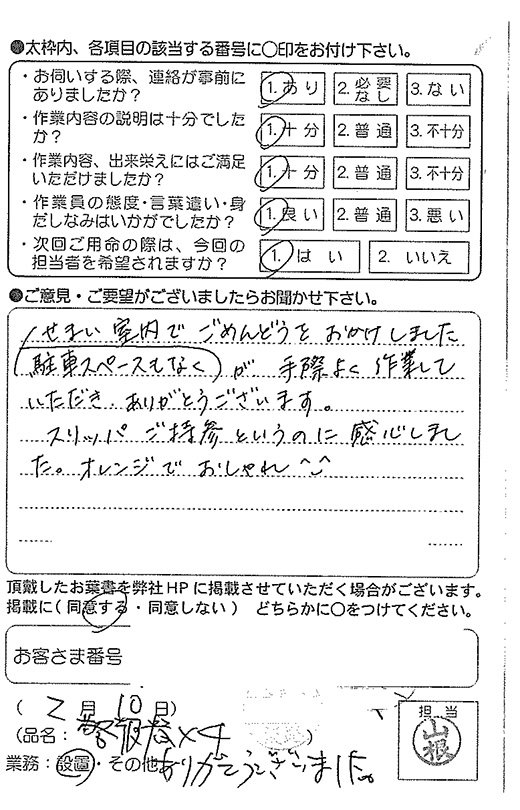 ●太枠内、各項目の該当する番号に○印をお付け下さい。
・お伺いする際、連絡が事前にありましたか? 1. あり 2. 必要なし 3. ない
・作業内容の説明は十分でしたか? 1. 十分 2. 普通 3. 不十分
・作業内容、出来栄えにはご満足いただけましたか? 1. 十分 2. 普通 3. 不十分
・作業員の態度・言葉遣い・身だしなみはいかがでしたか? 1. 良い 2. 普通 3. 悪い
・次回ご用命の際は、今回の担当者を希望されますか? 1. はい 2. いいえ
●ご意見・ご要望がございましたらお聞かせ下さい。
せまい室内でごめんどうをおかけしました
(駐車スペースもなく)が 手際よく作業して
いただき、ありがとうございます。
スリッパご持参というのに感心しまし
た。オレンジでおしゃれ^^
頂戴したお葉書を弊社HPに掲載させていただく場合がございます。
掲載に(同意する・同意しない) どちらかに○をつけてください。
お客さま番号
(2月10日)
担当
(品名: ×4 )
山根
業務:設置・その他
ありがとうございました。